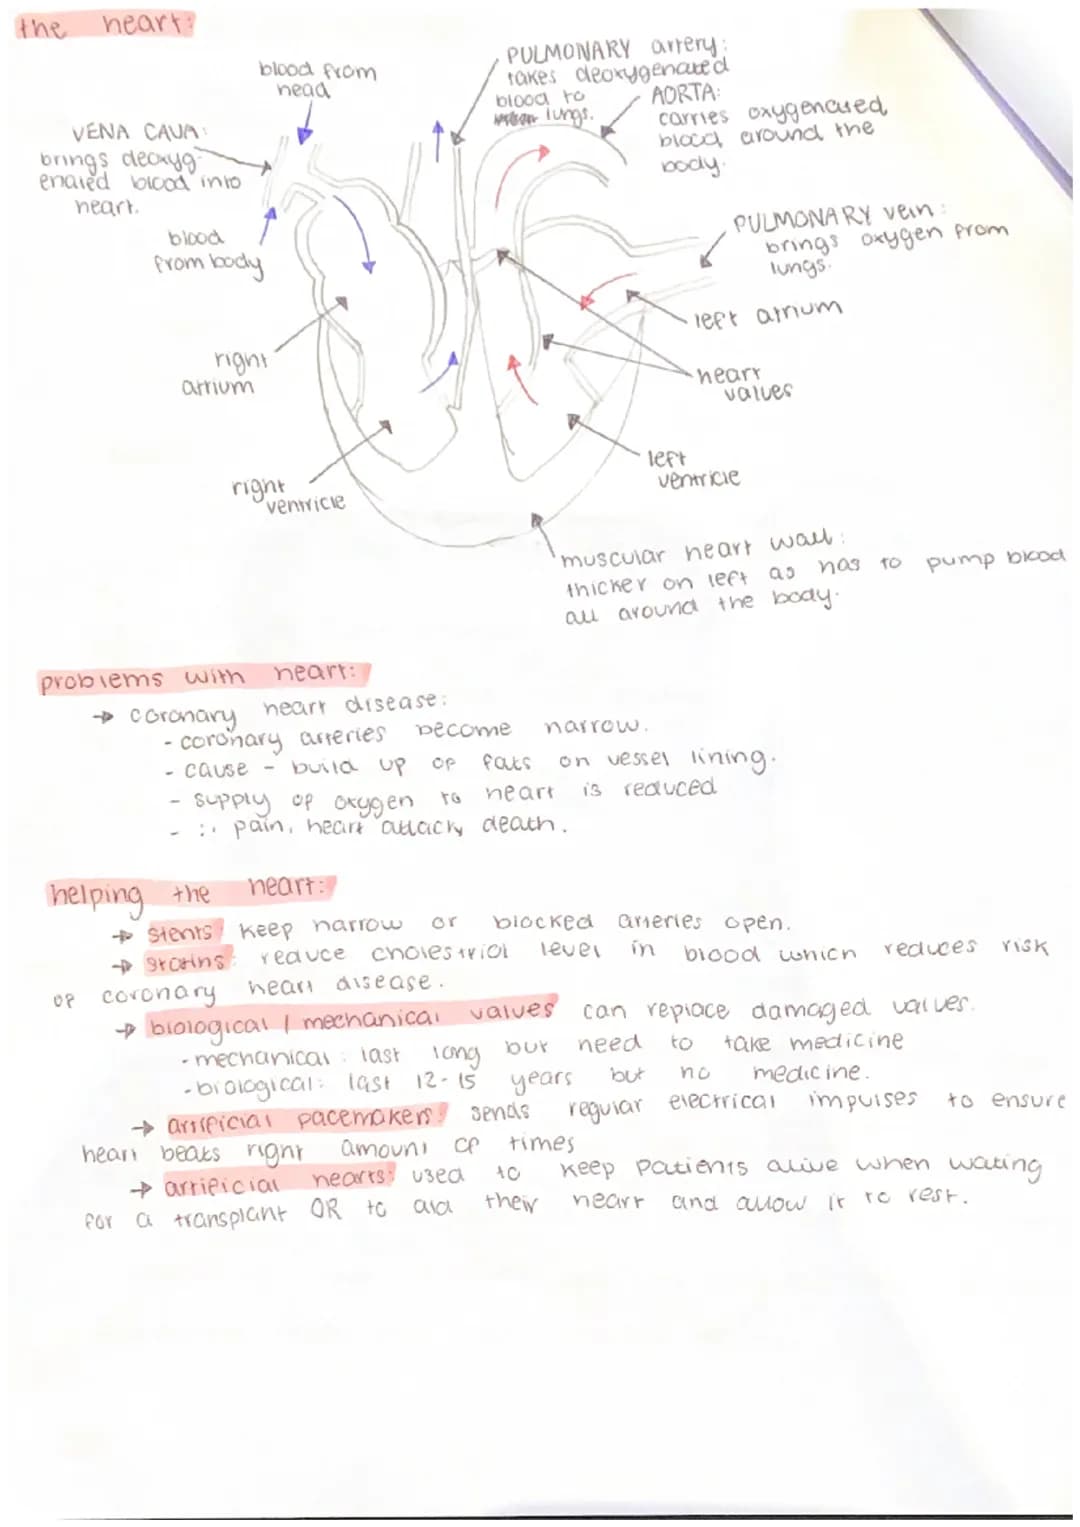 the heart:
blood from
head
PULMONARY artery:
takes deoxygenated
blood to
lungs.
AORTA:
carries oxygenated
blood around the
body.
VENA CAVA:
brings deoxyg-
enated blood into
heart.
blood
from body
PULMONARY vein:
brings oxygen from
lungs.
left atrium
right
atrium
heart
valves
left
ventricle
right
ventricle
muscular heart wall:
thicker on left as has to pump blood
all around the body.
problems with heart:
→ coronary heart disease:
- coronary arteries become narrow.
- cause - build up of fats on vessel lining.
- supply of oxygen to heart is reduced
- ∴ pain, heart attack, death.
helping the heart:
→ stents: keep narrow or blocked arteries open.
→ statins: reduce cholestriol level in blood which reduces risk
of coronary heart disease.
→ biological / mechanical valves can replace damaged valves.
- mechanical: last long but need to take medicine
- biological: last 12-15 years but no medicine.
→ artificial pacemakers: sends regular electrical impulses to ensure
heart beats right amount of times
→ artificial hearts: used to keep patients alive when wating
for a transplant OR to aid their heart and allow it to rest.